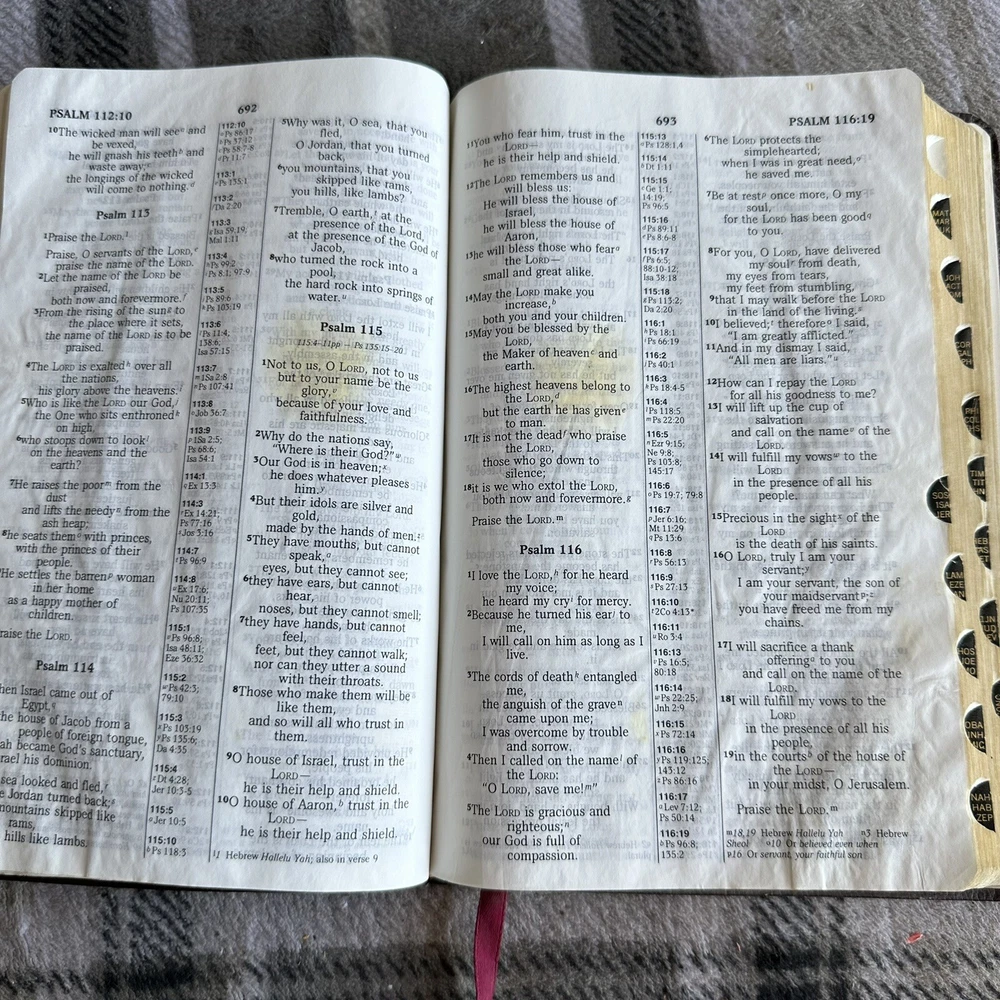 PSALM 112:10
692
10The wicked man will see and
be vexed,
he will gnash his teeth and
waste away;
the longings of the wicked
will come to nothing.
Psalm 113
1Praise the LORD.
Praise, O servants of the LORD,
praise the name of the LORD.
2Let the name of the LORD be
praised,
both now and forevermore.
3From the rising of the sun to
the place where it sets,
the name of the LORD is to be
praised.
4The LORD is exalted over all
the nations,
his glory above the heavens.
5Who is like the LORD our God,
the One who sits enthroned
on high,
6who stoops down to look
on the heavens and the
earth?
7He raises the poor from the
dust
and lifts the needy from the
ash heap;
8he seats them with princes,
with the princes of their
people.
He settles the barren woman
in her home
as a happy mother of
children.
raise the LORD.
Psalm 114
hen Israel came out of
Egypt,
he house of Jacob from a
people of foreign tongue,
ah became God's sanctuary,
rael his dominion.
sea looked and fled,
e Jordan turned back;
mountains skipped like
rams,
hills like lambs.
112:10
113:1
113:2
Da 2:20
113:3
Isa 59:19,
Mal 1:11
113:4
Ps 99:2
Ps 8:1; 97:9
113:5
Ps 89:6
Ps 103:19
113:6
Ps 11:4;
138:6;
Isa 57:15
113:7
1Sa 2:8
Ps 107:41
113:8
Job 36:7
113:9
1Sa 2:5;
Ps 68:6;
Isa 54:1
114:1
Ex 13:3
114:3
Ex 14:21;
Ps 77:16
Jos 3:16
114:7
Ps 96:9
114:8
Ex 17:6;
Nu 20:11;
Ps 107:35
115:1
Ps 96:8;
Isa 48:11;
Eze 36:32
115:2
Ps 42:3;
79:10
115:3
Ps 103:19
Ps 135:6;
Da 4:35
115:4
Dt 4:28;
Jer 10:3-5
115:5
Jer 10:5
115:10
Ps 118:3
5Why was it, O sea, that you
fled,
O Jordan, that you turned
back,
6you mountains, that you
skipped like rams,
you hills, like lambs?
7Tremble, O earth, at the
presence of the Lord,
at the presence of the God of
Jacob,
8who turned the rock into a
pool,
the hard rock into springs of
water.
Psalm 115
115:4-11pp — Ps 135:15-20
1Not to us, O LORD, not to us
but to your name be the
glory,
because of your love and
faithfulness.
2Why do the nations say,
"Where is their God?"
3Our God is in heaven;
he does whatever pleases
him.
4But their idols are silver and
gold,
made by the hands of men.
5They have mouths, but cannot
speak,
eyes, but they cannot see;
6they have ears, but cannot
hear,
noses, but they cannot smell;
7they have hands, but cannot
feel,
feet, but they cannot walk;
nor can they utter a sound
with their throats.
8Those who make them will be
like them,
and so will all who trust in
them.
9O house of Israel, trust in the
LORD—
he is their help and shield.
10O house of Aaron, trust in the
LORD—
he is their help and shield.
1 Hebrew Hallelu Yah; also in verse 9
693
PSALM 116:19
11You who fear him, trust in the
LORD—
he is their help and shield.
12The LORD remembers us and
will bless us:
He will bless the house of
Israel,
he will bless the house of
Aaron,
13he will bless those who fear
the LORD—
small and great alike.
14May the LORD make you
increase,
both you and your children.
15May you be blessed by the
LORD,
the Maker of heaven and
earth.
16The highest heavens belong to
the LORD,
but the earth he has given
to man.
17It is not the dead who praise
the LORD,
those who go down to
silence;
18it is we who extol the LORD,
both now and forevermore.
Praise the LORD.
Psalm 116
1I love the LORD, for he heard
my voice;
he heard my cry for mercy.
2Because he turned his ear to
me,
I will call on him as long as I
live.
3The cords of death entangled
me,
the anguish of the grave
came upon me;
I was overcome by trouble
and sorrow.
4Then I called on the name of
the LORD:
"O LORD, save me!"
5The LORD is gracious and
righteous;
our God is full of
compassion.
115:13
Ps 128:1,4
115:14
Dt 1:11
115:15
Ge 1:1;
14:19;
Ps 96:5
115:16
Ps 89:11
Ps 8:6-8
115:17
Ps 6:5;
88:10-12;
Isa 38:18
115:18
Ps 113:2;
Da 2:20
116:1
Ps 18:1
Ps 66:19
116:2
Ps 40:1
116:3
Ps 18:4-5
116:4
Ps 118:5
Ps 22:20
116:5
Ezr 9:15;
Ne 9:8;
Ps 103:8;
145:17
116:6
Ps 19:7; 79:8
116:7
Jer 6:16;
Mt 11:29
Ps 13:6
116:8
Ps 56:13
116:9
Ps 27:13
116:10
2Co 4:13*
116:11
Ro 3:4
116:13
Ps 16:5;
80:18
116:14
Ps 22:25;
Jnh 2:9
116:15
Ps 72:14
116:16
Ps 119:125;
143:12
Ps 86:16
116:17
Lev 7:12;
Ps 50:14
116:19
Ps 96:8;
135:2
6The LORD protects the
simplehearted;
when I was in great need,
he saved me.
7Be at rest once more, O my
soul,
for the LORD has been good
to you.
8For you, O LORD, have delivered
my soul from death,
my eyes from tears,
my feet from stumbling,
9that I may walk before the LORD
in the land of the living.
10I believed; therefore I said,
"I am greatly afflicted."
11And in my dismay I said,
"All men are liars."
12How can I repay the LORD
for all his goodness to me?
13I will lift up the cup of
salvation
and call on the name of the
LORD.
14I will fulfill my vows to the
LORD
in the presence of all his
people.
15Precious in the sight of the
LORD
is the death of his saints.
16O LORD, truly I am your
servant;
I am your servant, the son of
your maidservant;
you have freed me from my
chains.
17I will sacrifice a thank
offering to you
and call on the name of the
LORD.
18I will fulfill my vows to the
LORD
in the presence of all his
people,
19in the courts of the house of
the LORD—
in your midst, O Jerusalem.
Praise the LORD.
m18,19 Hebrew Hallelu Yah n3 Hebrew
Sheol o10 Or believed even when
p16 Or servant, your faithful son
MAT
MAR
JOH
ACT
COR
GAL
PHI
COL
TIM
TIT
SOS
ISA
JER
LAM
EZE
DAN
HOS
JOE
OBA
NAH
HAB
ZEP